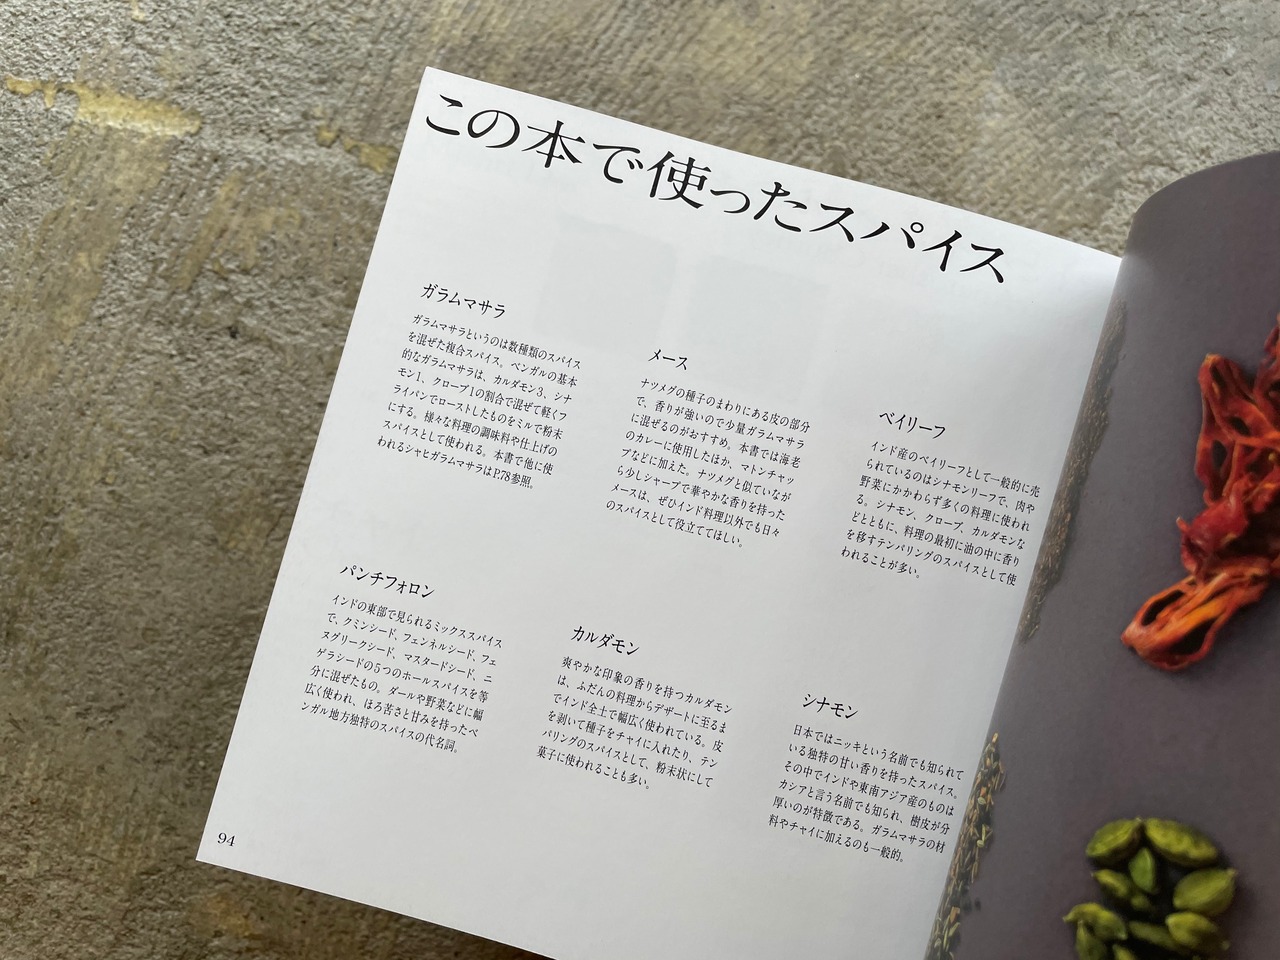 この本で使ったスパイス
ガラムマサラ
ガラムマサラというのは数種類のスパイス
を混ぜた複合スパイス。ベンガルの基本
的なガラムマサラは、カルダモン3、シナ
モン1、クローブ1の割合で混ぜて軽くフ
ライパンでローストしたものをミルで粉末
にする。様々な料理の調味料や仕上げの
スパイスとして使われる。本書で他に使
われるシャヒガラムマサラはP.78参照。
メース
ナツメグの種子のまわりにある皮の部分
で、香りが強いので少量ガラムマサラ
に混ぜるのがおすすめ。本書では海老
のカレーに使用したほか、マトンチャッ
プなどに加えた。ナツメグと似ていなが
ら少しシャープで華やかな香りを持った
メースは、ぜひインド料理以外でも日々
のスパイスとして役立ててほしい。
ベイリーフ
インド産のベイリーフとして一般的に売
られているのはシナモンリーフで、肉や
野菜にかかわらず多くの料理に使われ
る。シナモン、クローブ、カルダモンな
どとともに、料理の最初に油の中に香り
を移すテンパリングのスパイスとして使
われることが多い。
パンチフォロン
インドの東部で見られるミックススパイス
で、クミンシード、フェンネルシード、フェ
ヌグリークシード、マスタードシード、ニ
ゲラシードの5つのホールスパイスを等
分に混ぜたもの。ダールや野菜などに幅
広く使われ、ほろ苦さと甘みを持ったベ
ンガル地方独特のスパイスの代名詞。
カルダモン
爽やかな印象の香りを持つカルダモン
は、ふだんの料理からデザートに至るま
でインド全土で幅広く使われている。皮
を剥いて種子をチャイに入れたり、テン
パリングのスパイスとして、粉末状にして
菓子に使われることも多い。
シナモン
日本ではニッキという名前でも知られて
いる独特の甘い香りを持ったスパイス。
その中でインドや東南アジア産のものは
カシアと言う名前でも知られ、樹皮が分
厚いのが特徴である。ガラムマサラの材
料やチャイに加えるのも一般的。
94